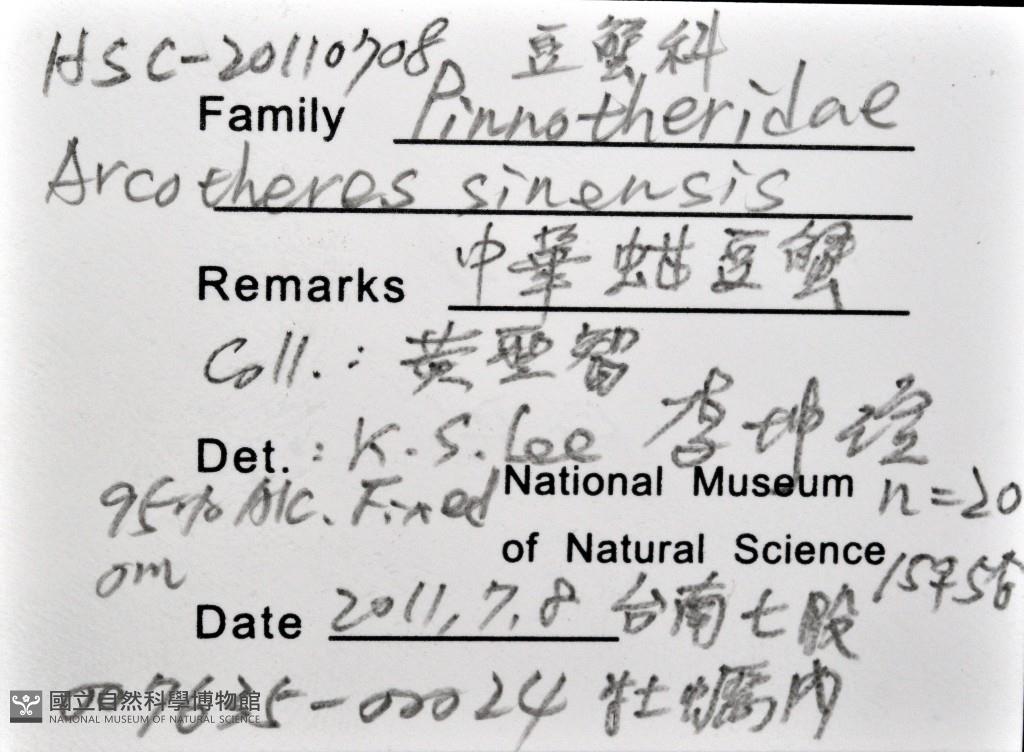 HSC-20110708 豆蟹科
Family Pinnotheridae
Arcotheres sinensis
Remarks 中華蚶豆蟹
Coll.: 黃聖智
Det.: K.S.Lee 李坤瑄
95% Alc. Fixed National Museum n=20
om of Natural Science 15♀5♂
Date 2011.7.8 台南七股
-00024 牡蠣內
國立自然科學博物館
NATIONAL MUSEUM OF NATURAL SCIENCE